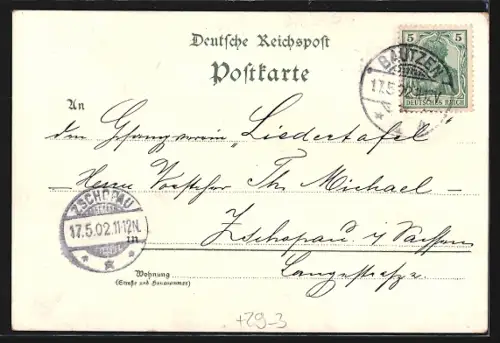 Deutsche Reichspost
Postkarte
5 5
DEUTSCHES REICH
BAUTZEN
17.5.02.
An
den Gesangverein „Liedertafel"
– Herrn Vorsteher Th. Michael –
ZSCHOPAU
17.5.02.11-12N.
in
Zschopau i/Sachsen
Langestraße
Wohnung
(Straße und Hausnummer)
+29-3